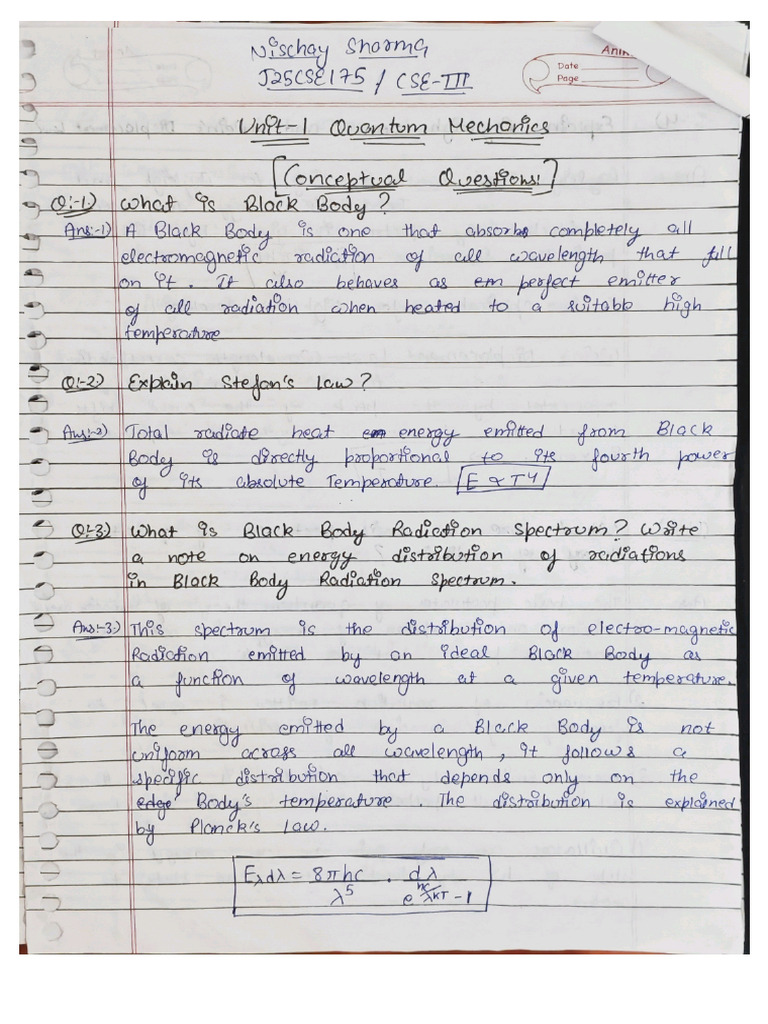 Nischay Sharma
J25CSE175 / CSE-III
Date
Page
Unit-1 Quantum Mechanics
[Conceptual Questions:]
Q:-1) What is Black Body?
Ans:-1) A Black Body is one that absorbs completely all
electromagnetic radiation of all wavelength that fall
on it. It also behaves as em perfect emitter
of all radiation when heated to a suitable high
temperature
Q:-2) Explain Stefan's law?
Ans:-2) Total radiate heat energy emitted from Black
Body is directly proportional to its fourth power
of its absolute Temperature. E ∝ T4
Q:-3) What is Black Body Radiation Spectrum? Write
a note on energy distribution of radiations
in Black Body Radiation Spectrum.
Ans:-3) This spectrum is the distribution of electro-magnetic
Radiation emitted by an ideal Black Body as
a function of wavelength at a given temperature.
The energy emitted by a Black Body is not
uniform across all wavelength, it follows a
specific distribution that depends only on the
Body's temperature. The distribution is explained
by Planck's Law.
Eλdλ = 8πhc/λ5 . dλ/(e^(hc/λKT) - 1)